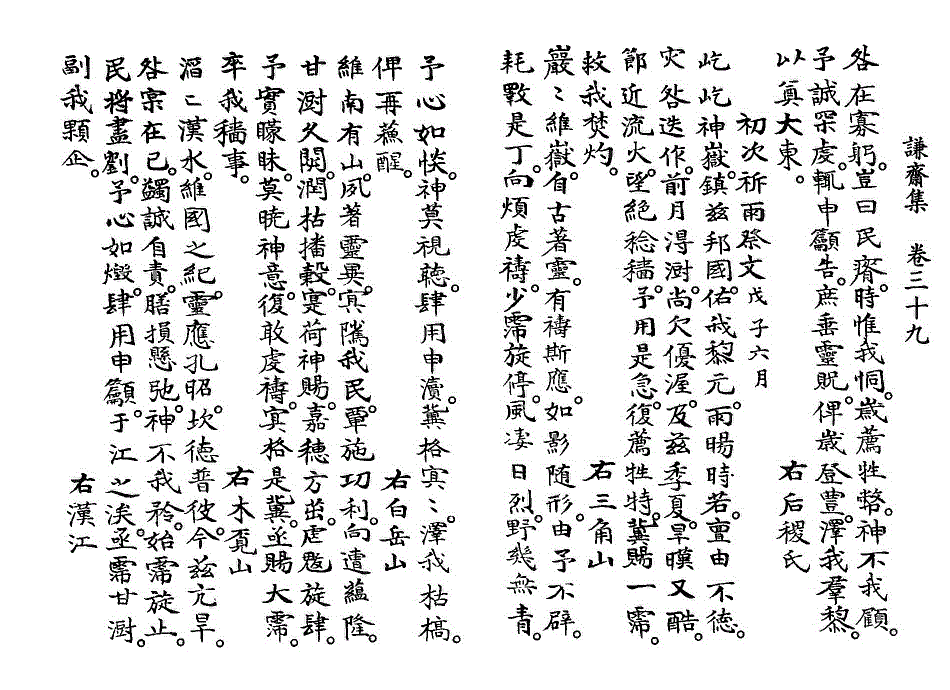 謙齋集　卷三十九
咎在寡躬。豈曰民瘠。時惟我恫。歲薦牲幣。神不我顧。
予誠罙虔。輒申籲告。庶垂靈貺。俾歲登豊。澤我羣黎。
以奠大東。　右后稷氏
初次祈雨祭文戊子六月
屹屹神嶽。鎭玆邦國。佑我黎元。雨暘時若。亶由不德。
灾咎迭作。前月得澍。尙欠優渥。及玆季夏。旱暵又酷。
節近流火。望絶稔穡。予用是急。復薦牲特。冀賜一霈。
救我焚灼。　右三角山
巖〻維嶽。自古著靈。有禱斯應。如影随形。由予不辟。
耗斁是丁。向煩虔禱。少霈旋停。風凄日烈。野幾無青。
予心如惔。神莫視聽。肆用申瀆。冀格冥〻。澤我枯槁。
俾再蘓醒。　右白岳山
維南有山。夙著靈異。冥隲我民。覃施功利。向遭蘊隆。
甘澍久閟。潤枯播穀。寔荷神賜。嘉穗方茁。虐魃旋肆。
予實矇昧。莫曉神意。復敢虔禱。冥格是冀。亟賜大霈。
卒我穡事。　右木覔山
滔〻漢水。維國之紀。靈應孔昭。坎德普彼。今玆亢旱。
咎寀在已。蠲誠自責。膳損懸弛。神不我矜。始霈旋止。
民將盡劉。予心如燬。肆用申籲。于江之涘。亟霈甘澍。
副我顒企。　右漢江